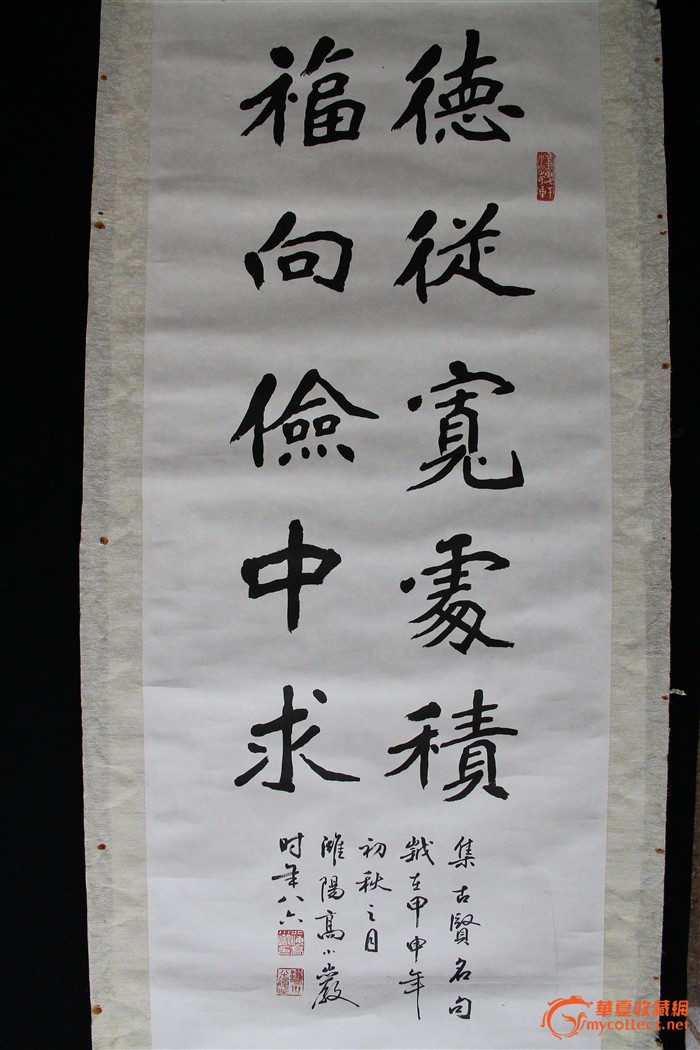 德從寬處積
福向儉中求
集古賢名句
歲在甲申年
初秋之月
濰陽高小巖
时年八六
華夏收藏網
mycollect.net